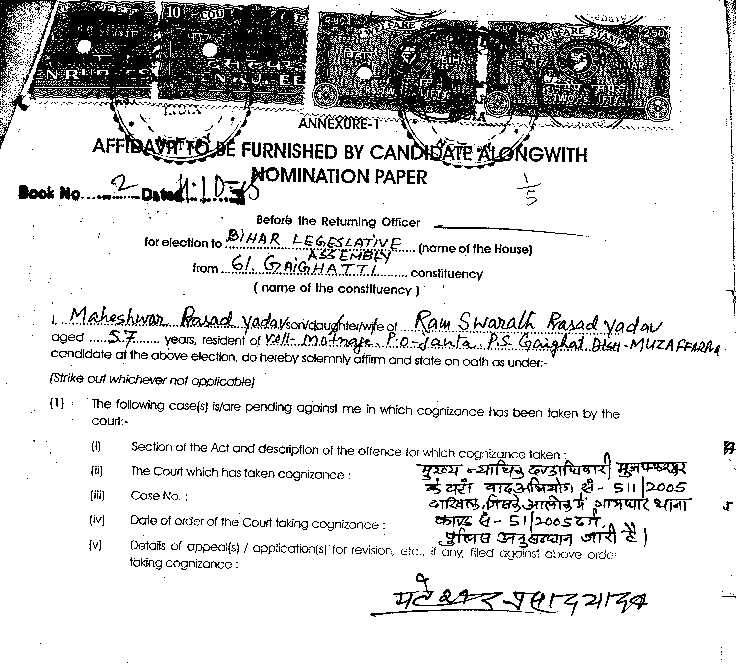 ANNEXURE-1
AFFIDAVIT TO BE FURNISHED BY CANDIDATE ALONGWITH
NOMINATION PAPER
1/5
Book No. 2 Dated
Before the Returning Officer
for election to BIHAR LEGESLATIVE ASSEMBLY (name of the House)
from 61, GAIGHATTI constituency
( name of the constituency )
I, Maheshwar Prasad Yadav son/daughter/wife of Ram Swarath Prasad Yadav
aged 57 years, resident of P.O-Janta P.S Gaighat Distt-MUZAFFARPUR
candidate at the above election, do hereby solemnly affirm and state on oath as under:-
(Strike out whichever not applicable)
(1) The following case(s) is/are pending against me in which cognizance has been taken by the
court:-
(i) Section of the Act and description of the offence for which cognizance taken :
(ii) The Court which has taken cognizance : मुख्य न्यायिक दण्डाधिकारी मुजफ्फरपुर
(iii) Case No. : के यहाँ वाद अभियोग सं- 511/2005
दाखिल, जिसके आलोक में थाना
(iv) Date of order of the Court taking cognizance : काण्ड सं- 51/2005 दर्ज
पुलिस अनुसन्धान जारी है।
(v) Details of appeal(s) / application(s) for revision, etc., if any, filed against above order
taking cognizance :
महेश्वर प्रसाद यादव